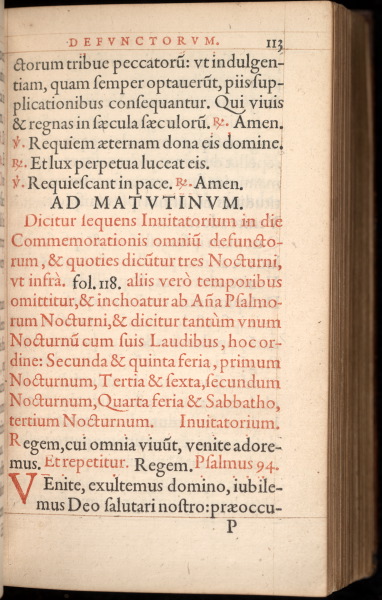 DEFVNCTORVM. 113
ctorum tribue peccatorū: vt indulgen-
tiam, quam ſemper optauerūt, piis ſup-
plicationibus conſequantur. Qui viuis
& regnas in ſæcula ſæculorū. ℟. Amen.
℣. Requiem æternam dona eis domine.
℟. Et lux perpetua luceat eis.
℣. Requieſcant in pace. ℟. Amen.
AD MATVTINVM.
Dicitur ſequens Inuitatorium in die
Commemorationis omniū defuncto-
rum, & quoties dicūtur tres Nocturni,
vt infrà. fol. 118. aliis verò temporibus
omittitur, & inchoatur ab Aña Pſalmo-
rum Nocturni, & dicitur tantùm vnum
Nocturnū cum ſuis Laudibus, hoc or-
dine: Secunda & quinta feria, primum
Nocturnum, Tertia & ſexta, ſecundum
Nocturnum, Quarta feria & Sabbatho,
tertium Nocturnum. Inuitatorium.
Regem, cui omnia viuūt, venite adore-
mus. Et repetitur. Regem. Pſalmus 94.
VEnite, exultemus domino, iubile-
mus Deo ſalutari noſtro: præoccu-
P